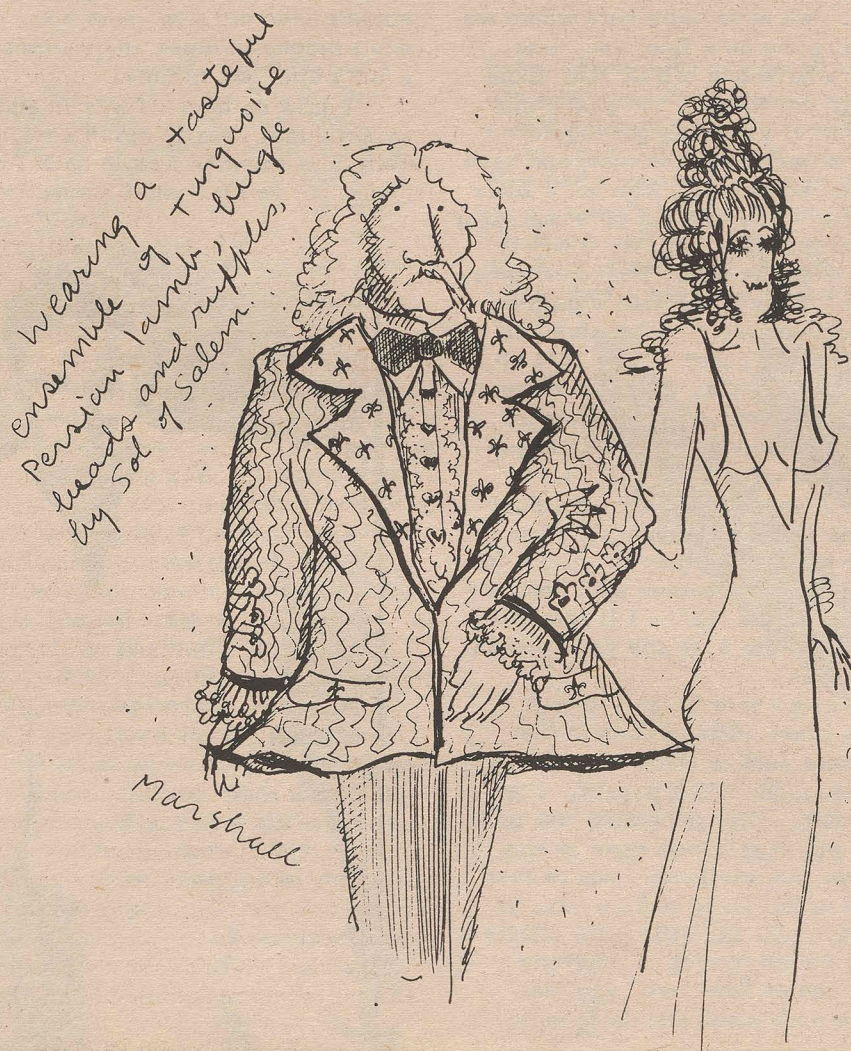 Wearing a tasteful
ensemble of turquoise
Persian lamb, bugle
beads and ruffles,
by Sol of Salem.
Marshall